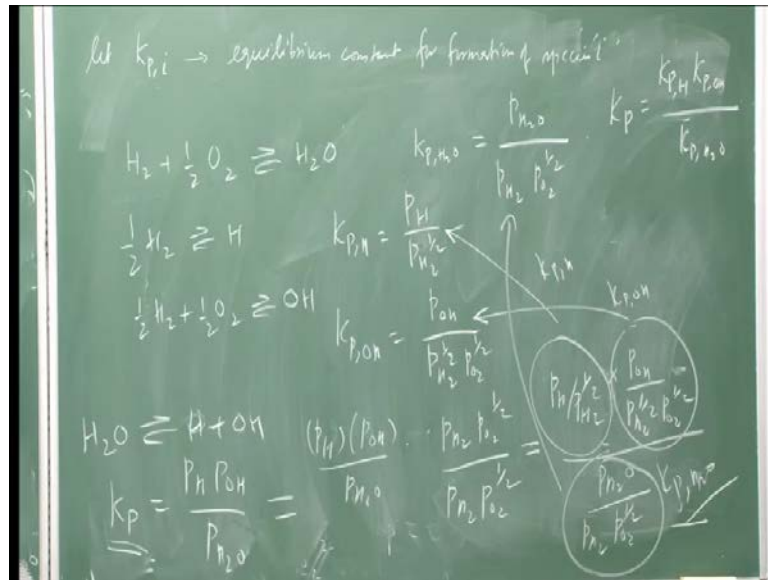 let K_{P,i} → equilibrium constant for formation of species i
H₂ + 1/2 O₂ ⇌ H₂O
K_{P,H₂O} = P_{H₂O} / (P_{H₂} P_{O₂}^{1/2})
K_P = K_{P,H} K_{P,OH} / K_{P,H₂O}
1/2 H₂ ⇌ H
K_{P,H} = P_H / P_{H₂}^{1/2}
K_{P,H}
K_{P,OH}
1/2 H₂ + 1/2 O₂ ⇌ OH
K_{P,OH} = P_{OH} / (P_{H₂}^{1/2} P_{O₂}^{1/2})
H₂O ⇌ H + OH
K_P = P_H P_{OH} / P_{H₂O} = (P_H)(P_{OH}) / P_{H₂O} · P_{H₂} P_{O₂}^{1/2} / (P_{H₂} P_{O₂}^{1/2}) = (P_H / P_{H₂}^{1/2} × P_{OH} / (P_{H₂}^{1/2} P_{O₂}^{1/2})) / (P_{H₂O} / (P_{H₂} P_{O₂}^{1/2}))
K_{P,H₂O}